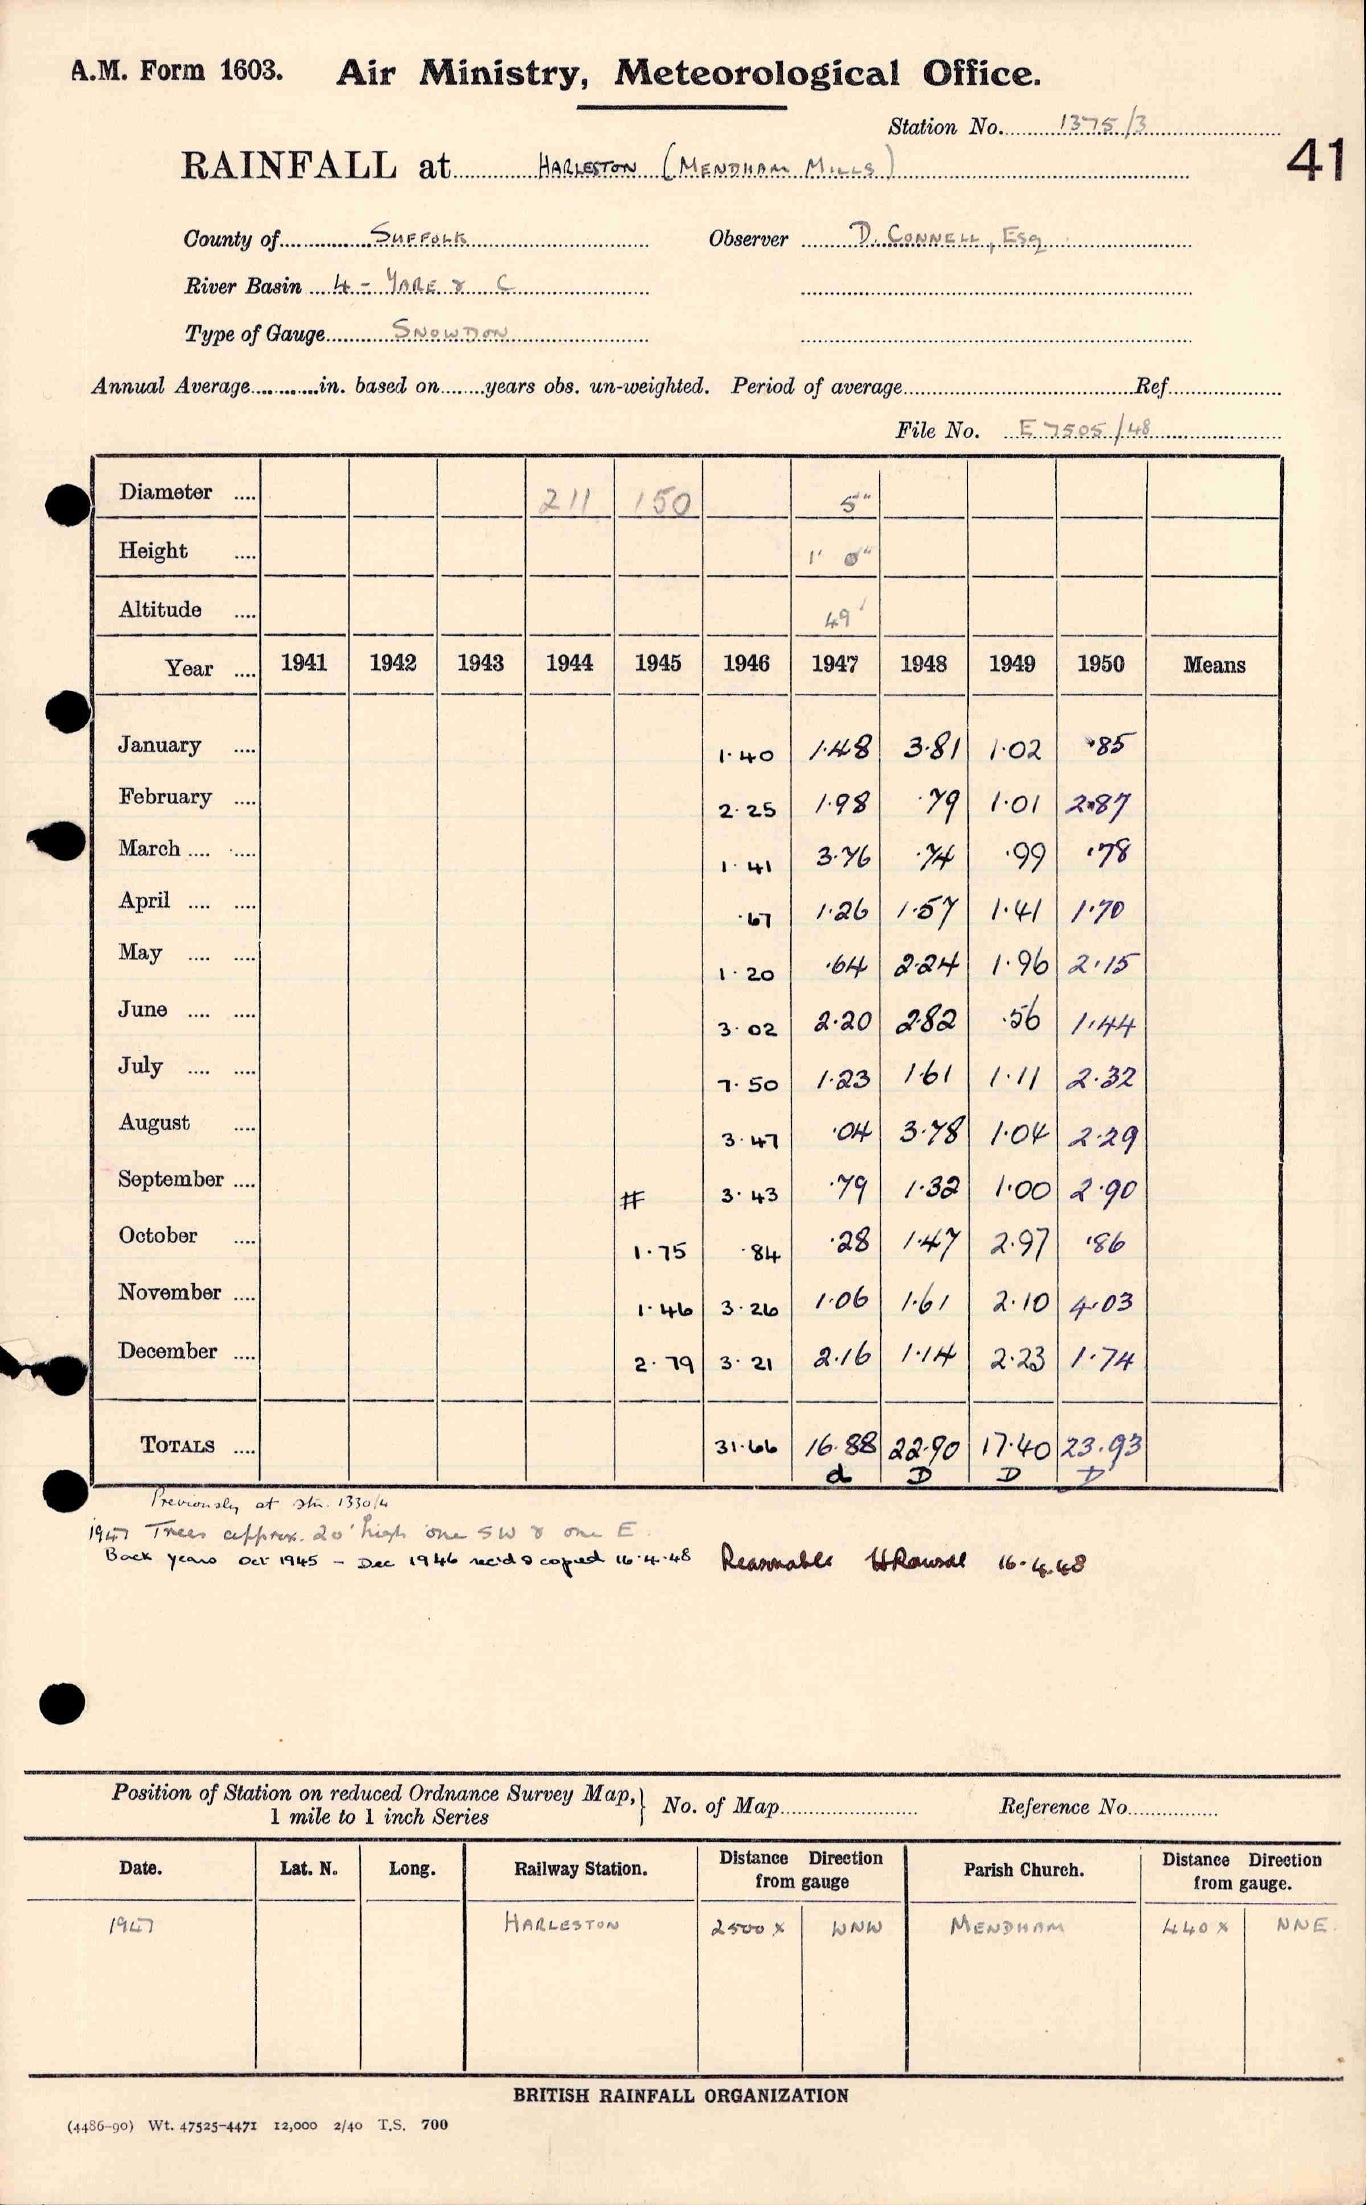 A.M. Form 1603. Air Ministry, Meteorological Office.
Station No. 1375/3
41
RAINFALL at HARLESTON (MENDHAM MILLS)
County of SUFFOLK Observer D. CONNELL, ESQ
River Basin 4 - YARE & C
Type of Gauge SNOWDON
Annual Average in. based on years obs. un-weighted. Period of average Ref
File No. E 7505/48
Diameter 211 150 5"
Height 1' 0"
Altitude 49'
Year 1941 1942 1943 1944 1945 1946 1947 1948 1949 1950 Means
January 1.40 1.48 3.81 1.02 .85
February 2.25 1.98 .79 1.01 2.87
March 1.41 3.76 .74 .99 .78
April .67 1.26 1.57 1.41 1.70
May 1.20 .64 2.24 1.96 2.15
June 3.02 2.20 2.82 .56 1.44
July 7.50 1.23 1.61 1.11 2.32
August 3.47 .04 3.78 1.04 2.29
September # 3.43 .79 1.32 1.00 2.90
October 1.75 .84 .28 1.47 2.97 .86
November 1.46 3.26 1.06 1.61 2.10 4.03
December 2.79 3.21 2.16 1.14 2.23 1.74
TOTALS 31.66 16.88 22.90 17.40 23.93
d D D D
Previously at stn. 1330/4
1947 Trees approx. 20' high one SW & one E.
Back years Oct 1945 - Dec 1946 rec'd & copied 16.4.48 Reasonable 16.4.48
Position of Station on reduced Ordnance Survey Map, 1 mile to 1 inch Series } No. of Map Reference No.
Date. Lat. N. Long. Railway Station. Distance Direction from gauge Parish Church. Distance Direction from gauge.
1947 HARLESTON 2500 x WNW MENDHAM 440 x NNE.
BRITISH RAINFALL ORGANIZATION
(4486-90) Wt. 47525-4471 12,000 2/40 T.S. 700